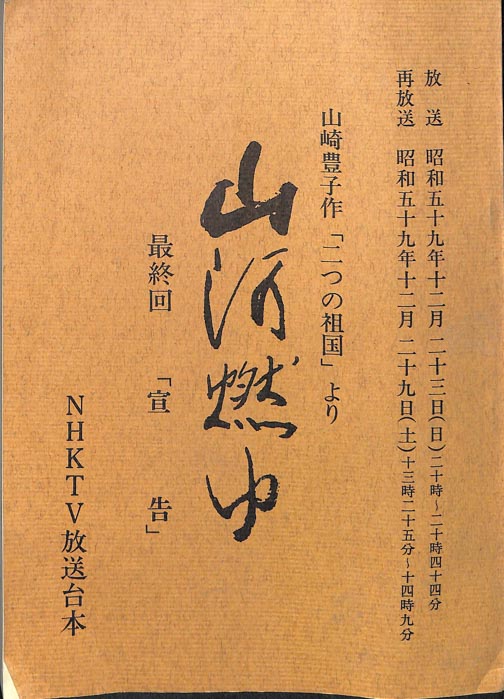 放送 昭和五十九年十二月 二十三日(日)二十時〜二十時四十四分
再放送 昭和五十九年十二月 二十九日(土)十三時二十五分〜十四時九分
山崎豊子作「二つの祖国」より
山河燃ゆ
最終回 「宣告」
NHKTV放送台本